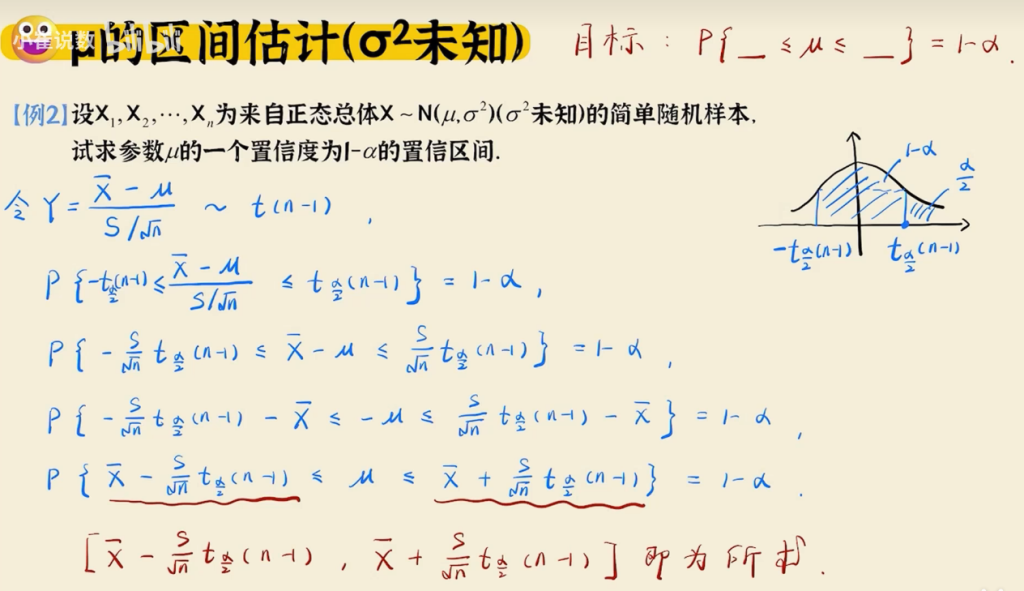 小崔说数 bilibili
μ的区间估计(σ²未知) 目标: P{ _ ≤ μ ≤ _ } = 1-α.
【例2】设X₁,X₂,⋯,Xₙ为来自正态总体X~N(μ,σ²)(σ²未知)的简单随机样本.
试求参数μ的一个置信度为1-α的置信区间.
1-α
α/2
-t_{α/2}(n-1) t_{α/2}(n-1)
令 Y = (X̄ - μ)/(S/√n) ~ t(n-1),
P{-t_{α/2}(n-1) ≤ (X̄ - μ)/(S/√n) ≤ t_{α/2}(n-1)} = 1-α,
P{ - S/√n t_{α/2}(n-1) ≤ X̄ - μ ≤ S/√n t_{α/2}(n-1)} = 1-α,
P{ - S/√n t_{α/2}(n-1) - X̄ ≤ -μ ≤ S/√n t_{α/2}(n-1) - X̄ } = 1-α,
P{ X̄ - S/√n t_{α/2}(n-1) ≤ μ ≤ X̄ + S/√n t_{α/2}(n-1)} = 1-α.
[X̄ - S/√n t_{α/2}(n-1), X̄ + S/√n t_{α/2}(n-1)] 即为所求.